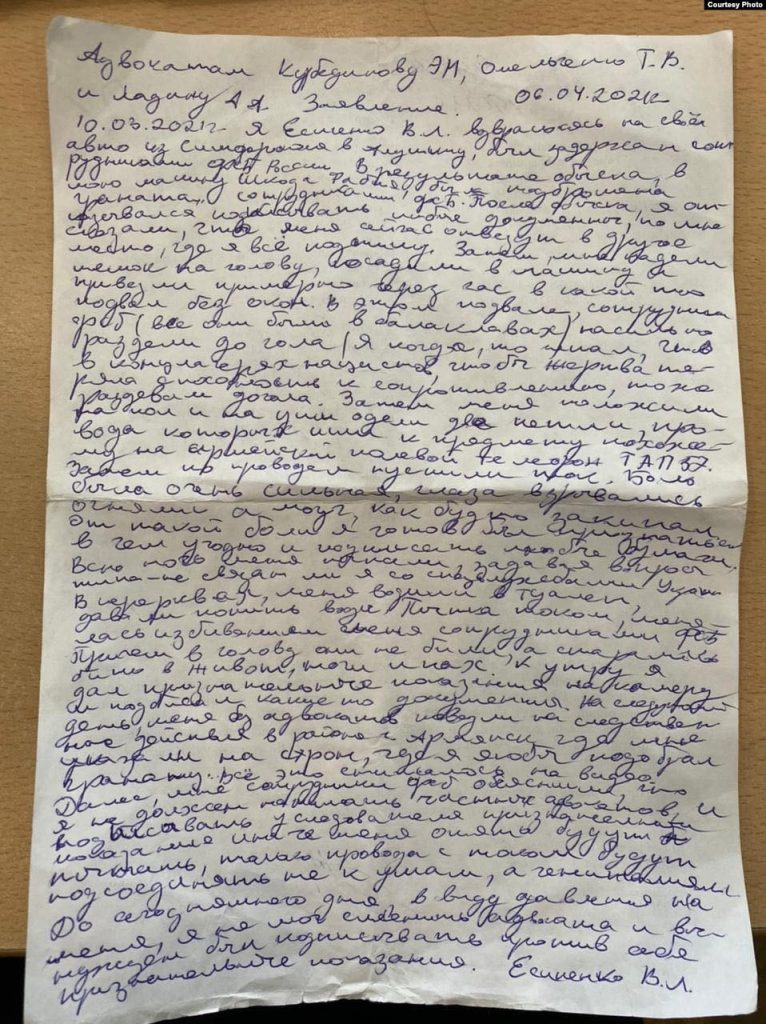 Courtesy Photo
Адвокатам Курбединову Э.М, Омельченко Т.В.
и Ладину А А Заявление. 06.04.2021г
10.03.2021г Я Есипенко В.Л. возвращаясь на своём
авто из Симферополя в Алушту, был задержан сот
рудниками ФСБ России. В результате обыска, в
мою машину Шкода Фабия, была подброшена
граната, сотрудниками ФСБ. После обыска, я от
казывался подписывать любые документы, но мне
сказали, что меня сейчас отвезут в другое
место, где я всё подпишу. Затем, мне надели
мешок на голову, посадили в машину и
привезли примерно через час в какой то
подвал без окон. В этом подвале, сотрудники
ФСБ (все они были в балаклавах) насильно
раздели до гола (я когда, то читал, что
в концлагерях нацистов, чтобы жертва те-
ряла способность к сопротивлению, тоже
раздевали догола. Затем меня положили
на пол и на уши одели две петли, про-
вода которых шли к предмету похоже-
му на армейский полевой телефон ТАП 57.
Затем по проводам пустили ток. Боль
была очень сильная, глаза взрывались
огнями а мозг, как будто закипал
От такой боли я готов был признаться
в чем угодно и подписать любые бумаги.
Всю ночь меня пытали, задавая вопросы
типа-не связан ли я со спецслужбами Украины
В перерывах, меня водили в туалет,
давали попить воды. Пытка током, меня-
лась избиванием меня сотрудниками ФСБ
Причем в голову они не били, а старались
бить в живот, ноги и пах. К утру я
дал признательные показания на камеру
и подписал какие то документы. На следующий
день меня без адвокатов повезли на следствен
ные действия в район г Армянск, где мне
указали на схрон, где я якобы подобрал
гранату. Всё это снималось на видео.
Далее, мне сотрудники ФСБ объяснили, что
я не должен нанимать частных адвокатов, и
подписывать у следователя признательные
показания иначе меня опять будут
пытать, только провода с током будут
подсоединять не к ушам, а гениталиям
До сегодняшнего дня, в виду давления на
меня, я не мог сменить адвоката и вы-
нужден был подписывать против себя
признательные показания. Есипенко В.Л.